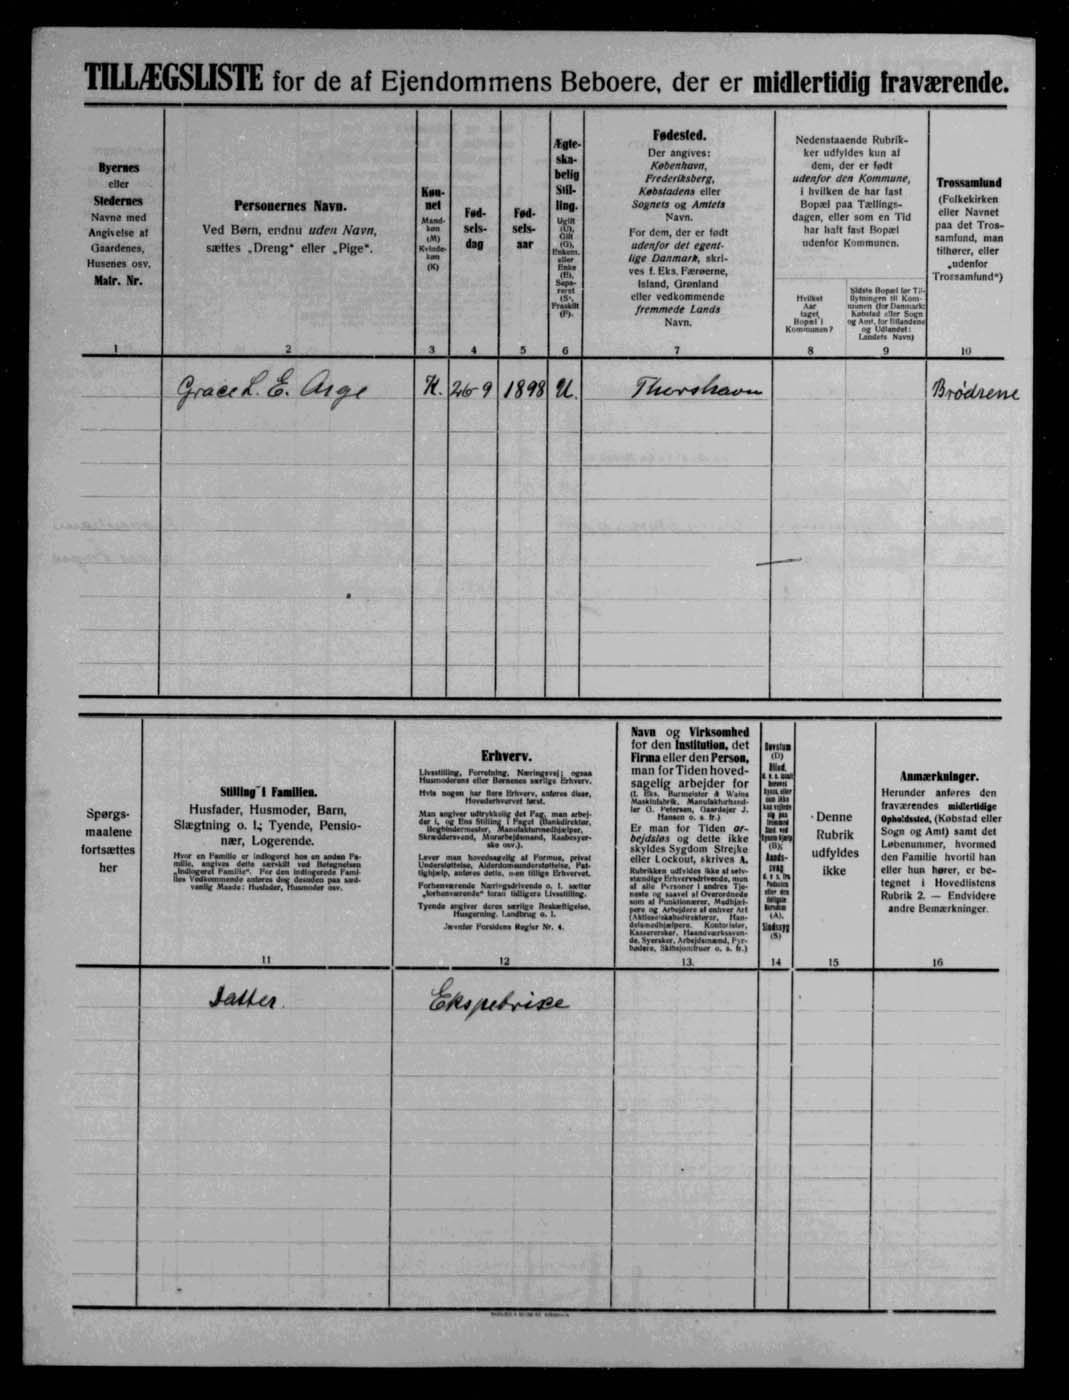 TILLÆGSLISTE for de af Ejendommens Beboere, der er midlertidig fraværende.
Byernes
eller
Stedernes
Navne med
Angivelse af
Gaardenes,
Husenes osv.
Matr. Nr.
1
Personernes Navn.
Ved Børn, endnu uden Navn,
sættes „Dreng“ eller „Pige“.
2
Køn-
net
Mand-
køn
(M)
Kvinde-
køn
(K)
3
Fød-
sels-
dag
4
Fød-
sels-
aar
5
Ægte-
ska-
belig
Stil-
ling.
Ugift
(U),
Gift
(G),
Enkem.
eller
Enke
(E),
Sepa-
reret
(S),
Fraskilt
(F).
6
Fødested.
Der angives:
København,
Frederiksberg,
Købstadens eller
Sognets og Amtets
Navn.
For dem, der er født
udenfor det egent-
lige Danmark, skri-
ves f. Eks. Færøerne,
Island, Grønland
eller vedkommende
fremmede Lands
Navn.
7
Nedenstaaende Rubrik-
ker udfyldes kun af
dem, der er født
udenfor den Kommune,
i hvilken de har fast
Bopæl paa Tællings-
dagen, eller som en Tid
har haft fast Bopæl
udenfor Kommunen.
Hvilket
Aar
taget
Bopæl i
Kommunen?
8
Sidste Bopæl før Til-
flytningen til Kom-
munen (for Danmark:
Købstad eller Sogn
og Amt, for Bilandene
og Udlandet:
Landets Navn)
9
Trossamfund
(Folkekirken
eller Navnet
paa det Tros-
samfund, man
tilhører, eller
„udenfor
Trossamfund“)
10
Grace L. E. Arge K. 26 9 1898 U. Thorshavn Brødrene
Spørgs-
maalene
fortsættes
her
Stilling i Familien.
Husfader, Husmoder, Barn,
Slægtning o. l.; Tyende, Pensio-
nær, Logerende.
Hvor en Familie er indlogeret hos en anden Fa-
milie, angives dette særskilt ved Betegnelsen
„Indlogeret Familie“. For den indlogerede Fami-
lies Vedkommende anføres dog desuden paa sæd-
vanlig Maade: Husfader, Husmoder osv.
11
Erhverv.
Livsstilling, Forretning, Næringsvej; ogsaa
Husmoderens eller Børnenes særlige Erhverv.
Hvis nogen har flere Erhverv, anføres disse,
Hovederhvervet først.
Man angiver udtrykkelig det Fag, man arbej-
der i, og Ens Stilling i Faget (Bankdirektør,
Bogbindermester, Manufakturmedhjælper,
Skræddersvend, Murarbejdsmand, Kasbesyer-
ske osv.).
Lever man hovedsagelig af Formue, privat
Understøttelse, Alderdomsunderstøttelse, Fat-
tighjælp, anføres dette, men tillige Erhvervet.
Forhenværende Næringsdrivende o. l. sætter
„forhenværende“ foran tidligere Livsstilling.
Tyende angiver deres særlige Beskæftigelse,
Husgerning, Landbrug o. l.
Jævnfør Forsidens Regler Nr. 4.
12
Navn og Virksomhed
for den Institution, det
Firma eller den Person,
man for Tiden hoved-
sagelig arbejder for
(f. Eks. Burmeister & Wains
Maskinfabrik, Manufakturhand-
ler G. Petersen, Gaardejer J.
Hansen o. s. fr.)
Er man for Tiden ar-
bejdsløs og dette ikke
skyldes Sygdom Strejke
eller Lockout, skrives A.
Rubrikken udfyldes ikke af selv-
stændige Erhvervsdrivende, men
af alle Personer i andres Tje-
neste og saavel af Overordnede
som af Funktionærer, Medhjæl-
pere og Arbejdere af enhver Art
(Aktieselskabsdirektører, Han-
delsmedhjælpere, Kontorister,
Kassererske, Haandværkssven-
de, Syersker, Arbejdsmænd, Fyr-
bødere, Skibsjomfruer o. s. fr.)
13.
Døvstum
(D)
Blind,
(B);
Aands-
svag
(A),
Sindssyg
(S)
14
Denne
Rubrik
udfyldes
ikke
15
Anmærkninger.
Herunder anføres den
fraværendes midlertidige
Opholdssted, (Købstad eller
Sogn og Amt) samt det
Løbenummer, hvormed
den Familie hvortil han
eller hun hører, er be-
tegnet i Hovedlistens
Rubrik 2. — Endvidere
andre Bemærkninger.
16
Datter. Ekspedrise